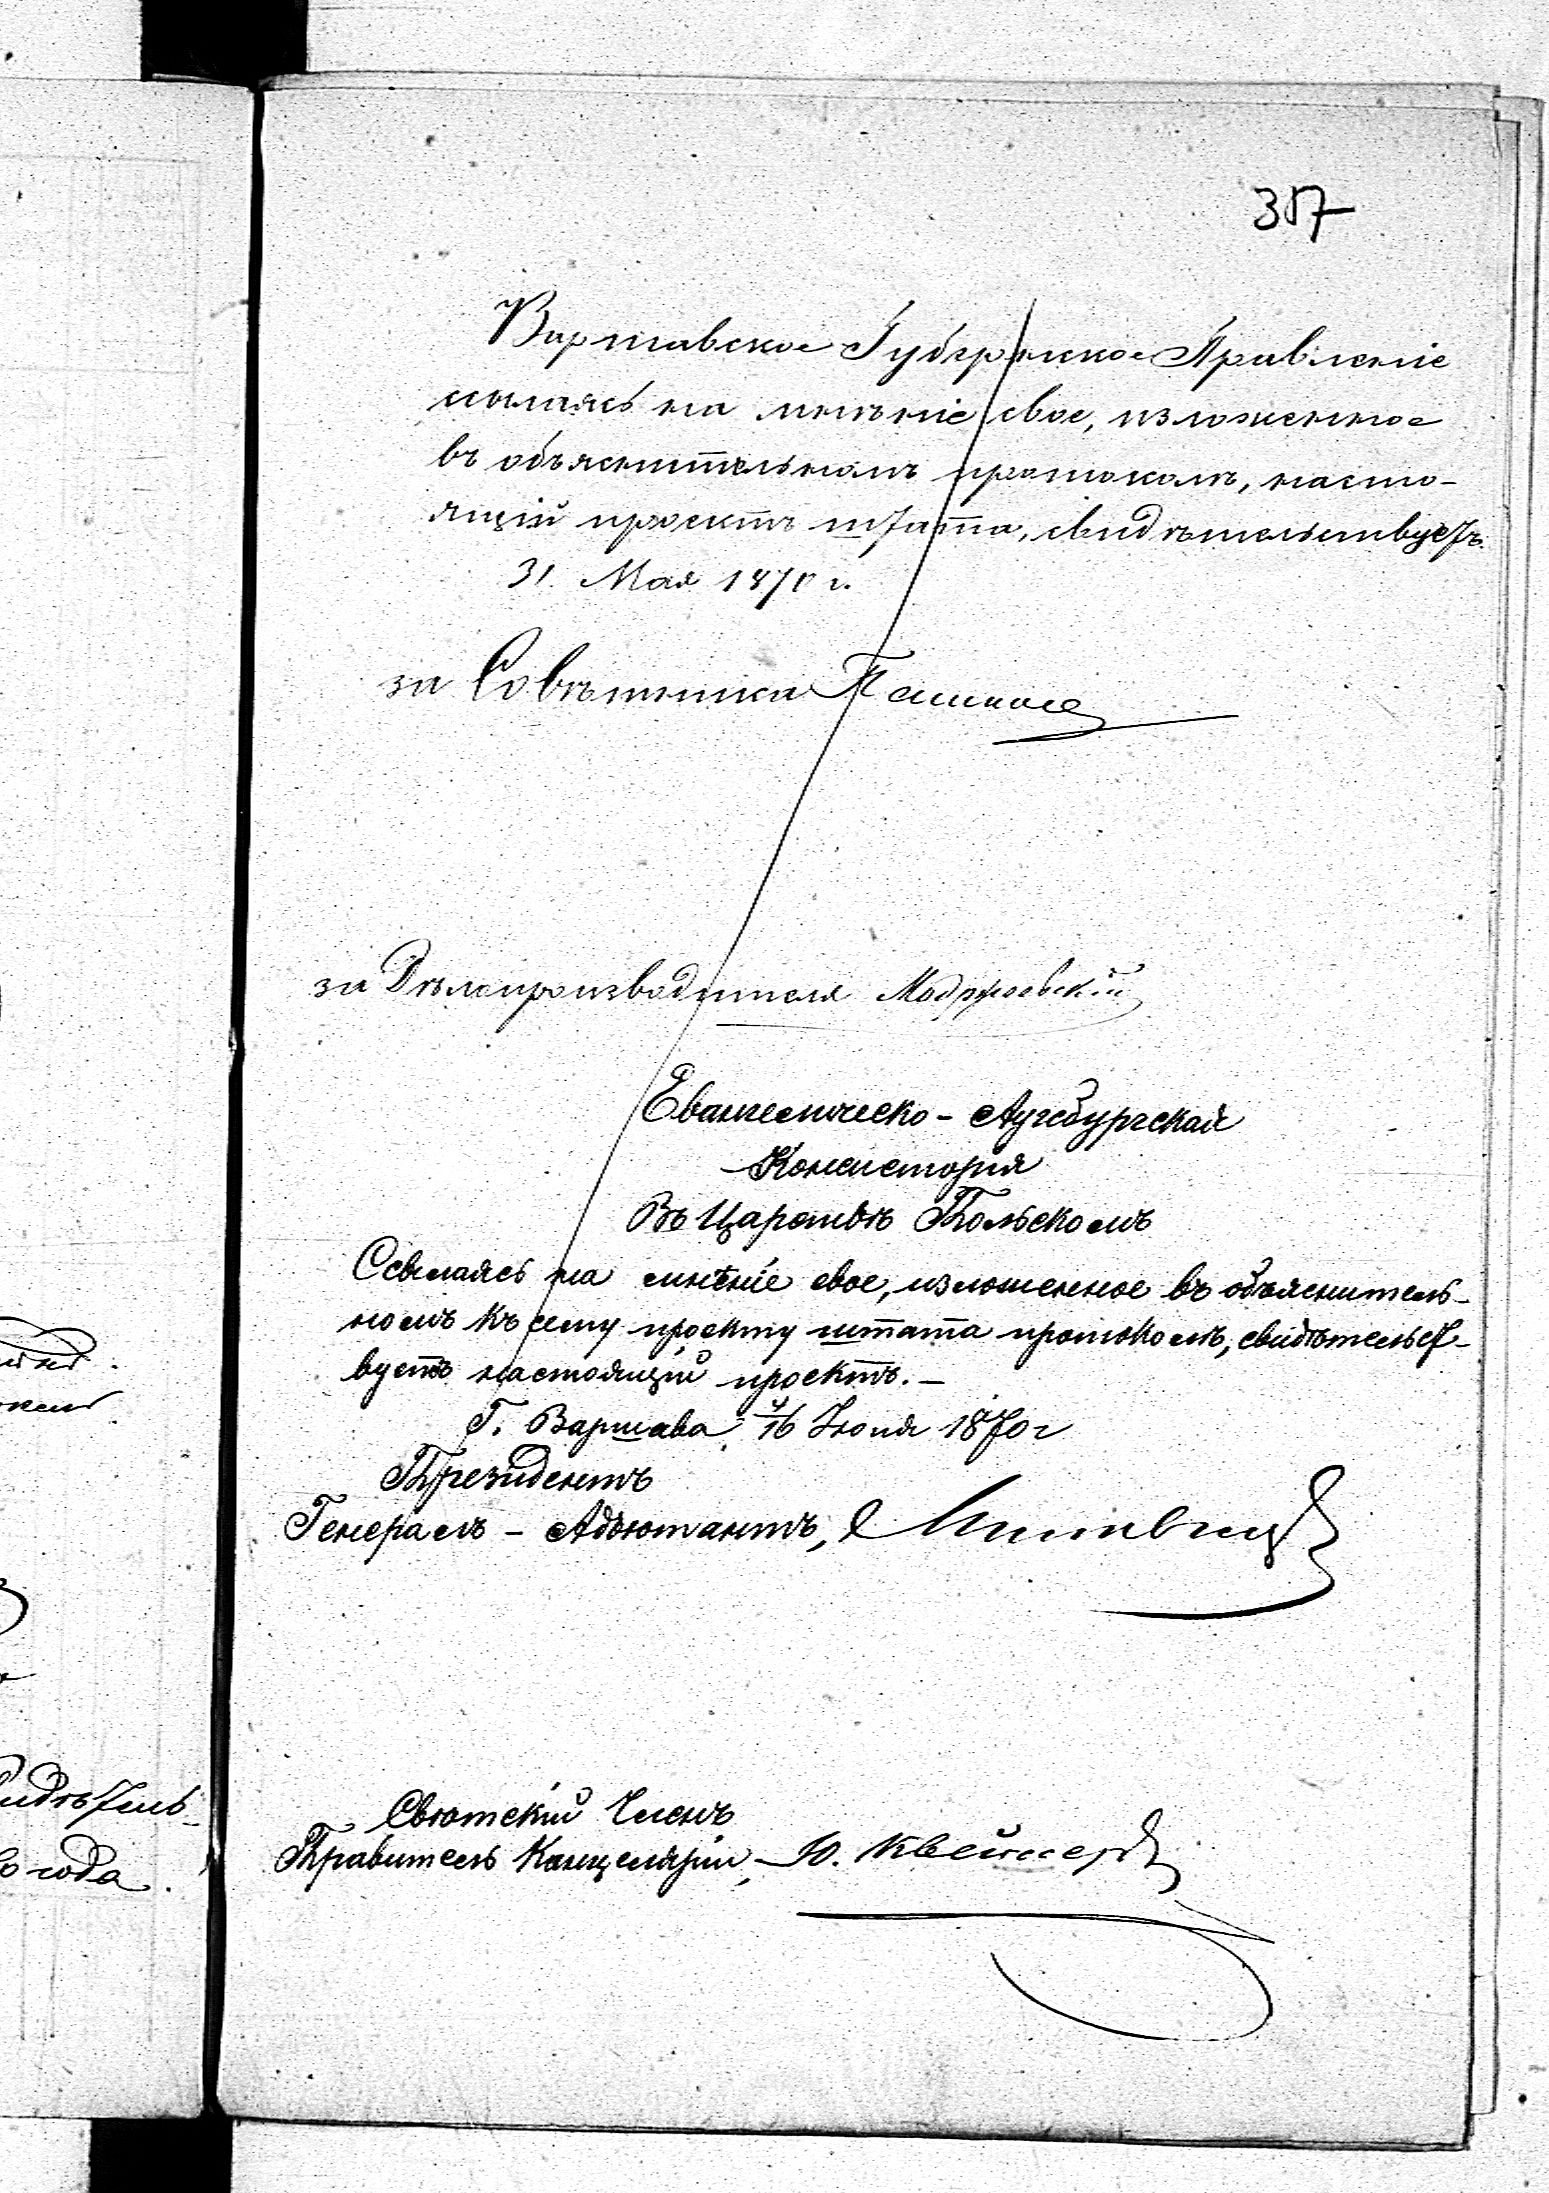 357
Варшавское Губернское Правленіе
ссылаясь на мнѣніе свое, изложенное
въ объяснительномъ протоколѣ, насто-
ящій проектъ штата, свидѣтельствуетъ.
31. Мая 1870 г.
за Совѣтника
за Дѣлопроизводителя Модржевскій
Евангелическо - Аугсбургская
Консисторія
Въ Царствѣ Польскомъ
Ссылаясь на мнѣніе свое, изложенное въ объяснитель-
номъ къ сему проекту штата протоколѣ, свидѣтельст-
вуетъ настоящій проектъ. —
Г. Варшава, 4/16 Іюня 1870 г
Президентъ
Генералъ - Адъютантъ,
Свѣтскій Членъ
Правитель Канцеляріи, Ю.
года.